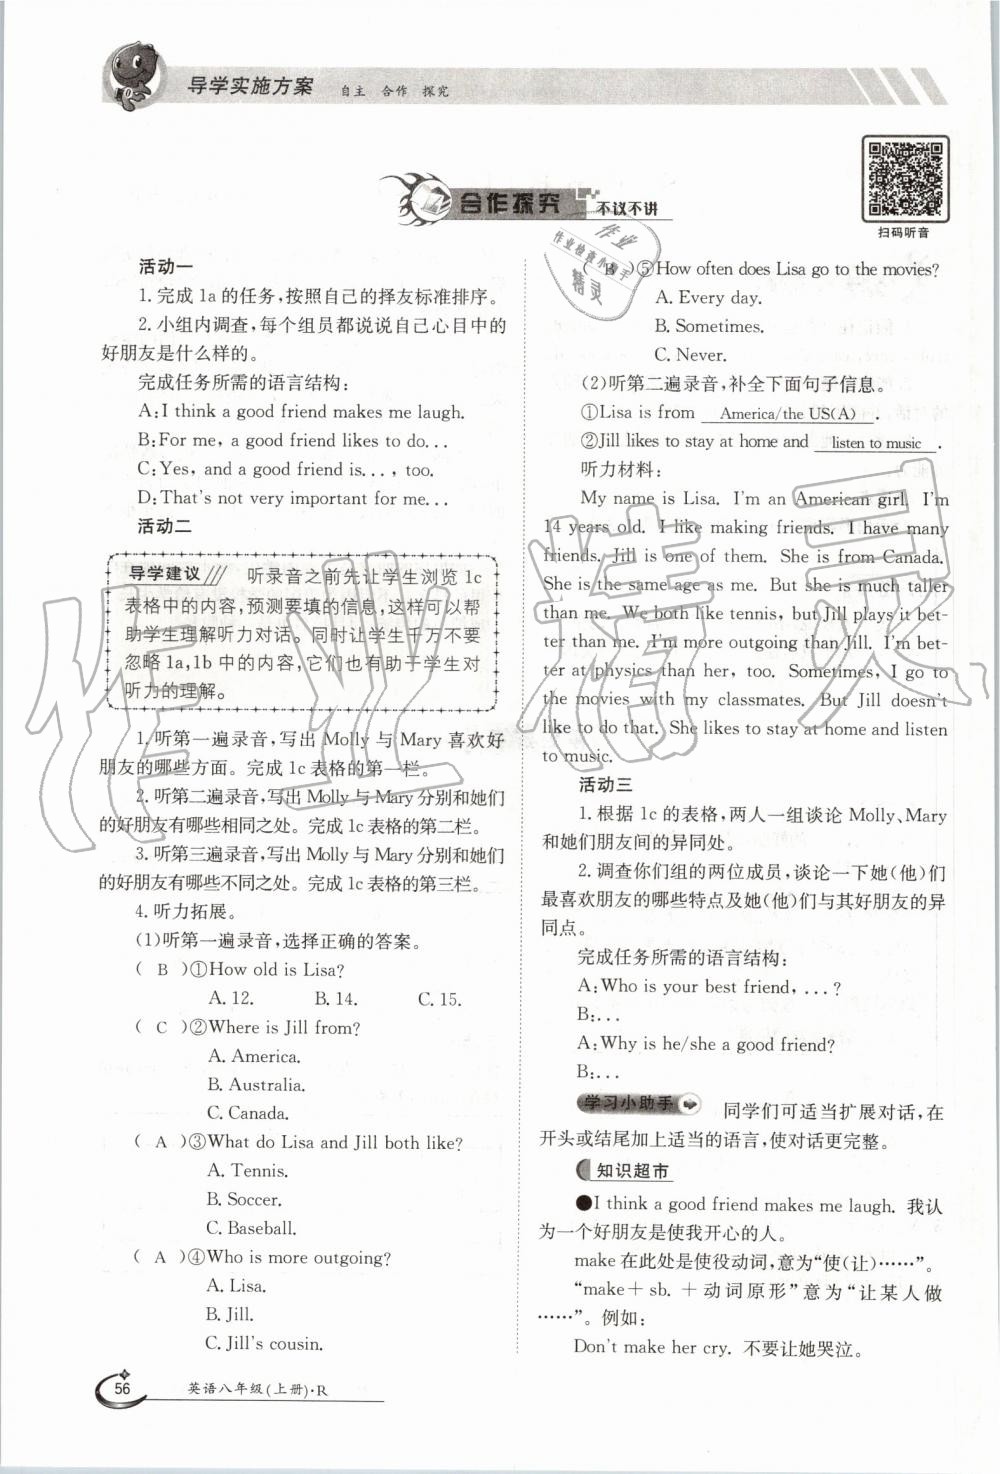 导学实施方案 自主 合作 探究
扫码听音
合作探究 不议不讲
活动一
1.完成1a的任务,按照自己的择友标准排序。
2.小组内调查,每个组员都说说自己心目中的
好朋友是什么样的。
完成任务所需的语言结构:
A:I think a good friend makes me laugh.
B:For me, a good friend likes to do...
C:Yes, and a good friend is..., too.
D:That's not very important for me...
活动二
导学建议 听录音之前先让学生浏览1c
表格中的内容,预测要填的信息,这样可以帮
助学生理解听力对话。同时让学生千万不要
忽略1a,1b中的内容,它们也有助于学生对
听力的理解。
1.听第一遍录音,写出Molly与Mary喜欢好
朋友的哪些方面。完成1c表格的第一栏。
2.听第二遍录音,写出Molly与Mary分别和她们
的好朋友有哪些相同之处。完成1c表格的第二栏。
3.听第三遍录音,写出Molly与Mary分别和她们
的好朋友有哪些不同之处。完成1c表格的第三栏。
4.听力拓展。
(1)听第一遍录音,选择正确的答案。
( B )①How old is Lisa?
A. 12. B. 14. C. 15.
( C )②Where is Jill from?
A. America.
B. Australia.
C. Canada.
( A )③What do Lisa and Jill both like?
A. Tennis.
B. Soccer.
C. Baseball.
( A )④Who is more outgoing?
A. Lisa.
B. Jill.
C. Jill's cousin.
( B )⑤How often does Lisa go to the movies?
A. Every day.
B. Sometimes.
C. Never.
(2)听第二遍录音,补全下面句子信息。
①Lisa is from America/the US(A) .
②Jill likes to stay at home and listen to music .
听力材料:
My name is Lisa. I'm an American girl. I'm
14 years old. I like making friends. I have many
friends. Jill is one of them. She is from Canada.
She is the same age as me. But she is much taller
than me. We both like tennis, but Jill plays it bet-
ter than me. I'm more outgoing than Jill. I'm bet-
ter at physics than her, too. Sometimes, I go to
the movies with my classmates. But Jill doesn't
like to do that. She likes to stay at home and listen
to music.
活动三
1.根据1c的表格,两人一组谈论Molly、Mary
和她们朋友间的异同处。
2.调查你们组的两位成员,谈论一下她(他)们
最喜欢朋友的哪些特点及她(他)们与其好朋友的异
同点。
完成任务所需的语言结构:
A:Who is your best friend, ...?
B:...
A:Why is he/she a good friend?
B:...
学习小助手 同学们可适当扩展对话,在
开头或结尾加上适当的语言,使对话更完整。
知识超市
●I think a good friend makes me laugh. 我认
为一个好朋友是使我开心的人。
make在此处是使役动词,意为“使(让)……”。
“make+ sb. +动词原形”意为“让某人做
……”。例如:
Don't make her cry. 不要让她哭泣。
56 英语八年级(上册)·R
作业
作业检查小助手
精灵
作业精灵